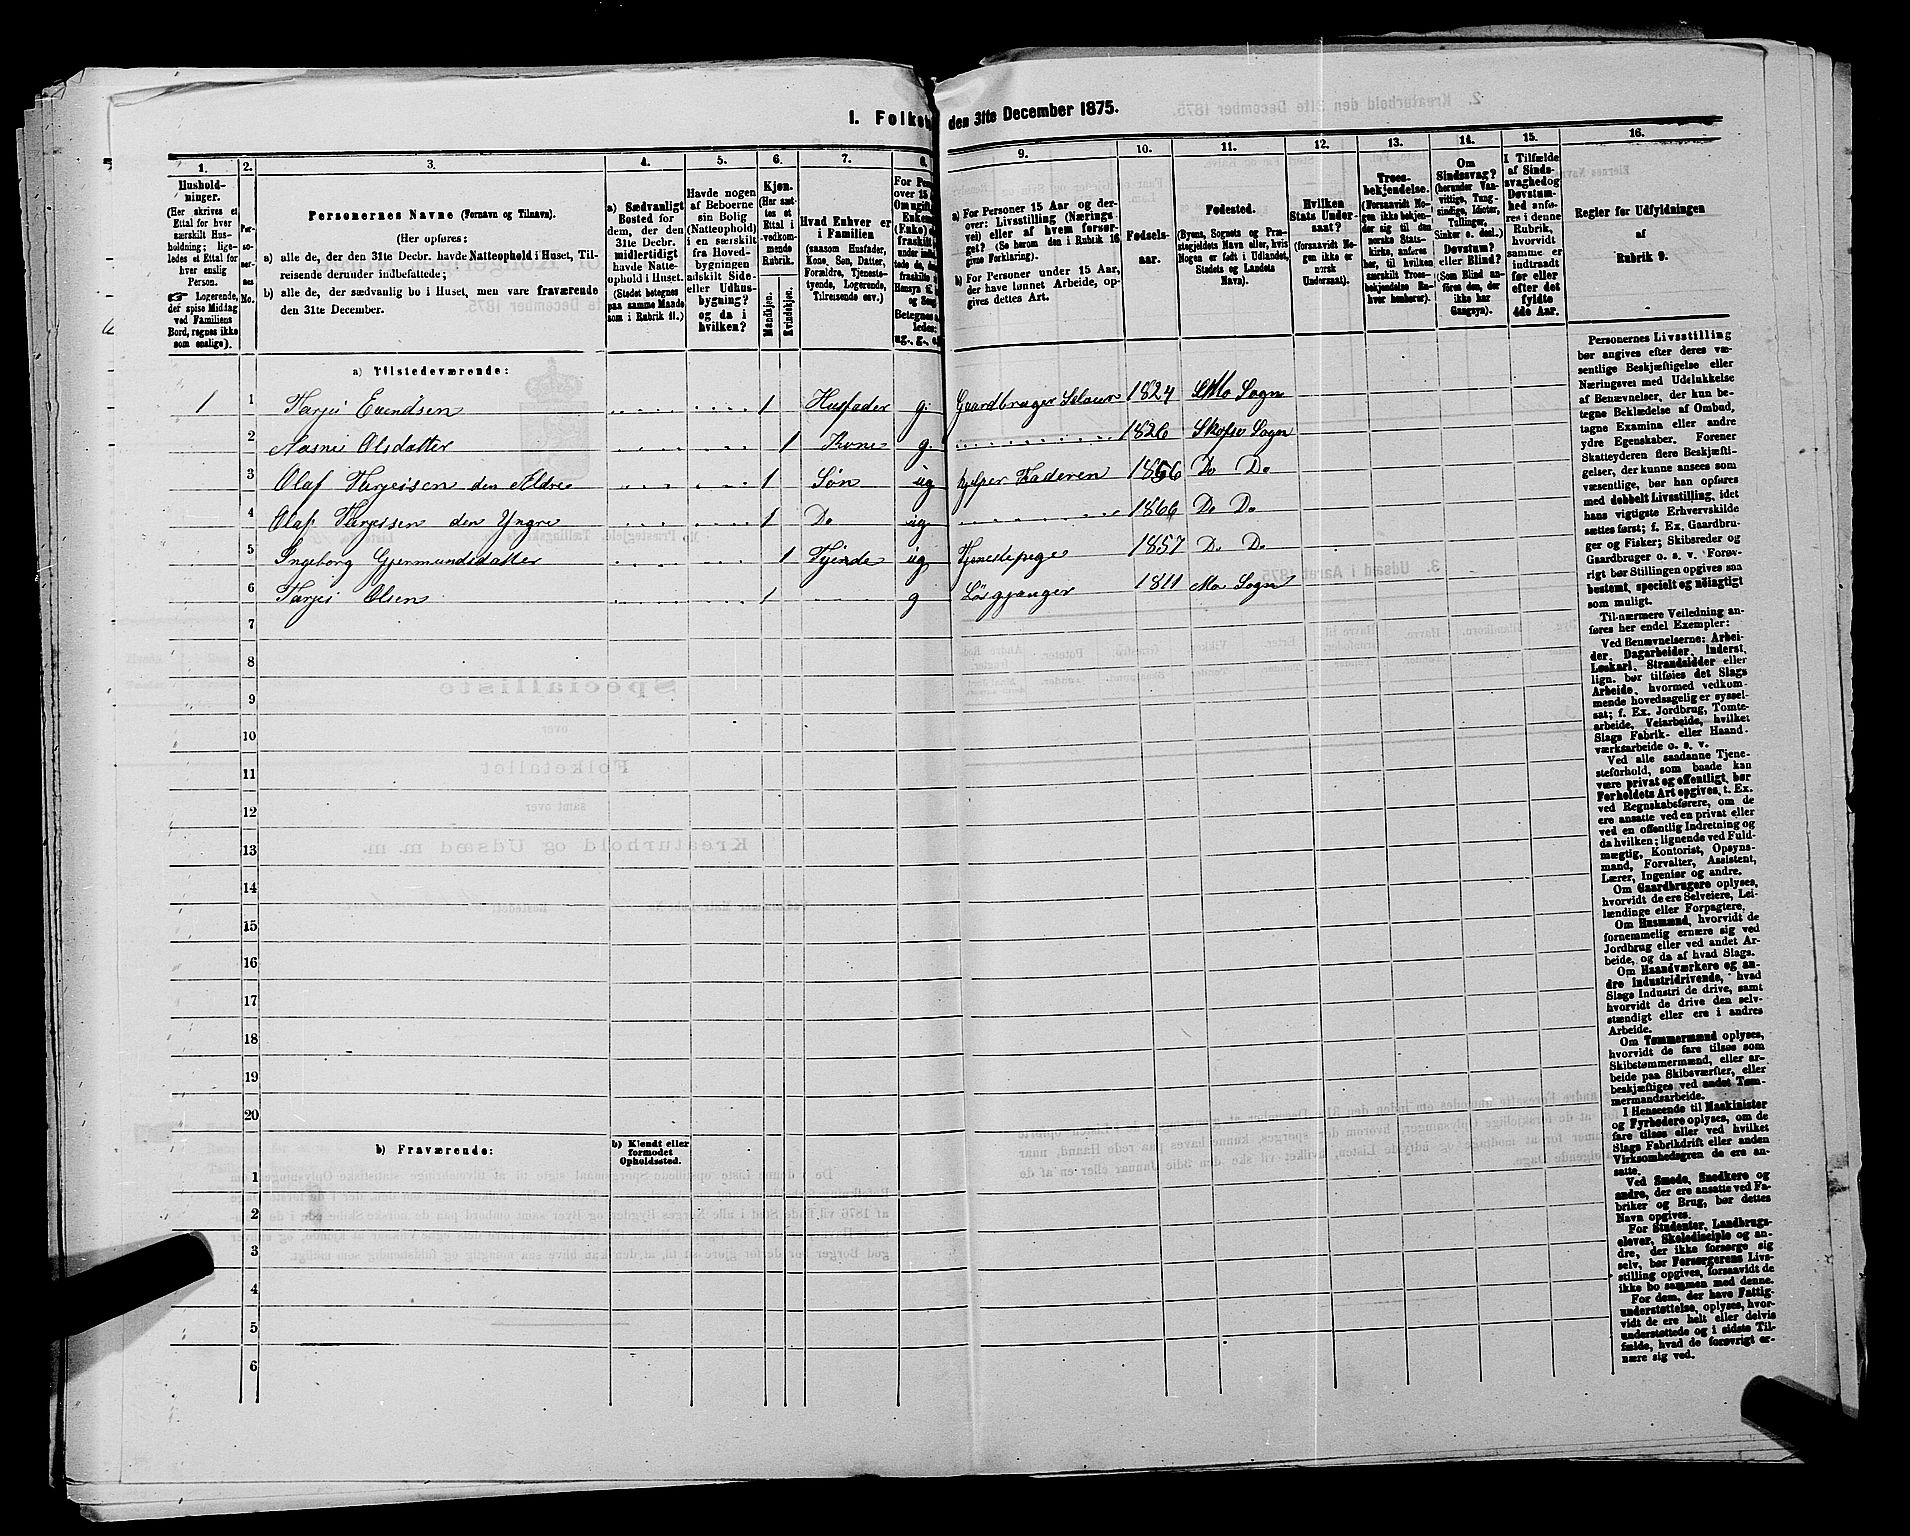 I. Folke den 31te December 1875.
1. 2. 3. 4. 5. 6. 7. 8. 9. 10. 11. 12. 13. 14. 15. 16.
Hushold-
ninger.
(Her skrives et
Ettal for hver
særskilt Hus-
holdning; lige-
ledes et Ettal for
hver enslig
Person.
Logerende,
der spise Middag
ved Familiens
Bord, regnes ikke
som enslige).
Per-
so-
ner-
nes
No.
Personernes Navne (Fornavn og Tilnavn).
(Her opføres:
a) alle de, der den 31te Decbr. havde Natteophold i Huset, Til-
reisende derunder indbefattede;
b) alle de, der sædvanlig bo i Huset, men vare fraværende
den 31te December.
a) Sædvanligt
Bosted for
dem, der den
31te Decbr.
midlertidigt
havde Natte-
ophold i Huset.
(Stedet betegnes
paa samme Maade
som i Rubrik 11.)
Havde nogen
af Beboerne
sin Bolig
(Natteophold)
i en særskilt
fra Hoved-
bygningen
adskilt Side-
eller Udhus-
bygning?
og da i
hvilken?
Kjøn.
(Her sæt-
tes et
Ettal i
vedkom-
mende
Rubrik.
Mandkjøn.
Kvindekjøn.
Hvad Enhver er
i Familien
(saasom Husfader,
Kone, Søn, Datter,
Forældre, Tjeneste-
tyende, Logerende,
Tilreisende osv.)
For Per
over 15
Om ugift
Enkem
(Enke) o
fraskilt
Betegnes
ledes:
ug., g.,
a) For Personer 15 Aar og der-
over: Livsstilling (Nærings-
vei) eller af hvem forsør-
get? (Se herom den i Rubrik 16
givne Forklaring).
b) For Personer under 15 Aar,
der have lønnet Arbeide, op-
gives dettes Art.
Fødsels-
aar.
Fødested.
(Byens, Sognets og Præ-
stegjeldets Navn eller, hvis
Nogen er født i Udlandet,
Stedets og Landets
Navn).
Hvilken
Stats Under-
saat?
(forsaavidt No-
gen ikke er
norsk
Undersaat).
Troes-
bekjendelse.
(Forsaavidt No-
gen ikke bekjen-
der sig til den
norske Stats-
kirke, anføres
her, til hvilken
særskilt Troes-
bekjendelse En-
hver henhører).
Om
Sindssvag?
(herunder Van-
vittige, Tung-
sindige, Idioter,
Tullinger,
Sinker o. desl.)
Døvstum?
eller Blind?
(Som Blind an-
føres den, der
ikke har
Gangsyn).
I Tilfælde
af Sinds-
svaghed og
Døvstum-
hed anfø-
res i denne
Rubrik,
hvorvidt
samme er
indtraadt
før eller
efter det
fyldte
4de Aar.
Regler for Udfyldningen
af
Rubrik 9.
a) Tilstedeværende:
1 1 Tarjei Evendsen 1 Husfader g. Gaardbruger 1824 Mo Sogn
2 Olsdatter 1 Kone g. 1826 Sogn
3 Olaf Tarjeisen den Ældre 1 Søn ug hjelper Faderen 1856 Do Do
4 Olaf Tarjeisen den Yngre 1 Do ug. 1866 Do Do
5 Ingeborg Gjermundsdatter 1 Tjende ug Tjenestepige 1857 Do Do
6 Tarjei Olsen 1 g Løsgjænger 1811 Mo Sogn
7
8
9
10
11
12
13
14
15
16
17
18
19
20
b) Fraværende:
b) Kjendt eller
formodet
Opholdssted.
1
2
3
4
5
6
Personernes Livsstilling
bør angives efter deres væ-
sentlige Beskjæftigelse eller
Næringsvei med Udelukkelse
af Benævnelser, der kun be-
tegne Beklædelse af Ombud,
tagne Examina eller andre
ydre Egenskaber. Forener
Skatteyderen flere Beskjæfti-
gelser, der kunne ansees som
væsentlige, bør han opføres
med dobbelt Livsstilling, idet
hans vigtigste Erhvervskilde
sættes først; f. Ex. Gaardbru-
ger og Fisker; Skibsreder og
Gaardbruger o. s. v. Forøv-
rigt bør Stillingen opgives saa
bestemt, specielt og nøiagtigt
som muligt.
Til nærmere Veiledning an-
føres her endel Exempler:
Ved Benævnelserne: Arbei-
der, Dagarbeider, Inderst,
Løskarl, Strandsidder eller
lign. bør tilføies det Slags
Arbeide, hvormed vedkom-
mende hovedsagelig er syssel-
sat; f. Ex. Jordbrug, Tomte-
arbeide, Veiarbeide, hvilket
Slags Fabrik- eller Haand-
værksarbeide o. s. v.
Ved alle saadanne Tjene-
steforhold, som baade kan
være privat og offentligt, bør
Forholdets Art opgives, t. Ex.
ved Regnskabsførere, om de
ere ansatte ved en privat eller
ved en offentlig Indretning og
da hvilken; lignende ved Fuld-
mægtig, Kontorist, Opsyns-
mand, Forvalter, Assistent,
Lærer, Ingeniør og andre.
Om Gaardbrugere oplyses,
hvorvidt de ere Selveiere, Lei-
lændinge eller Forpagtere.
Om Husmænd, hvorvidt de
fornemmelig ernære sig ved
Jordbrug eller ved andet Ar-
beide, og da af hvad Slags.
Om Haandværkere og an-
dre Industridrivende, hvad
Slags Industri de drive, samt
hvorvidt de drive den selv-
stændigt eller ere i andres
Arbeide.
Om Tømmermænd oplyses,
hvorvidt de fare tilsøs som
Skibstømmermænd, eller ar-
beide paa Skibsværfter, eller
beskjæftiges ved andet Tøm-
mermandsarbeide.
I Henseende til Maskinister
og Fyrbødere oplyses, om de
fare tilsøs eller ved hvilket
Slags Fabrikdrift eller anden
Virksomhedsgren de ere an-
satte.
Ved Smede, Snedkere og
andre, der ere ansatte ved Fa-
briker og Brug, bør dettes
Navn opgives.
For Studenter, Landbrugs-
elever, Skoledisciple og an-
dre, der ikke forsørge sig
selv, bør Forsørgerens Livs-
stilling opgives, forsaavidt de
ikke bo sammen med denne.
For dem, der have Fattig-
understøttelse, oplyses, hvor-
vidt de ere helt eller delvis
understøttede og i sidste Til-
fælde, hvad de forøvrigt er-
nære sig ved.